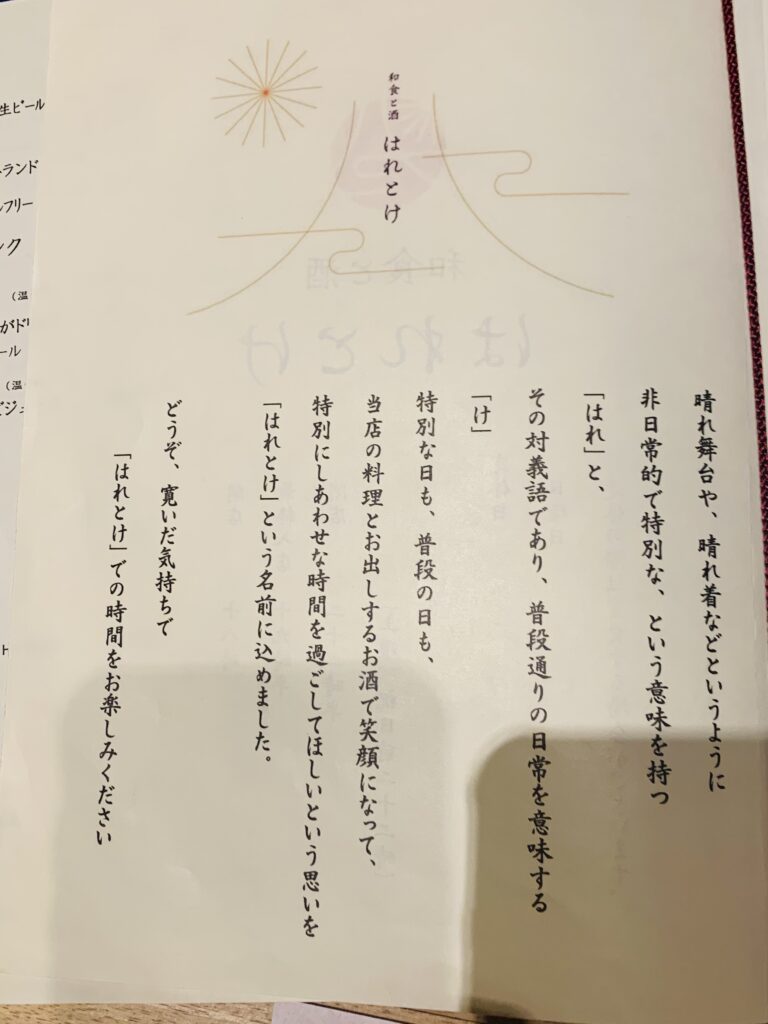 和食と酒
はれとけ
晴れ舞台や、晴れ着などというように
非日常的で特別な、という意味を持つ
「はれ」と、
その対義語であり、普段通りの日常を意味する
「け」
特別な日も、普段の日も、
当店の料理とお出しするお酒で笑顔になって、
特別にしあわせな時間を過ごしてほしいという思いを
「はれとけ」という名前に込めました。
どうぞ、寛いだ気持ちで
「はれとけ」での時間をお楽しみください
生ビール